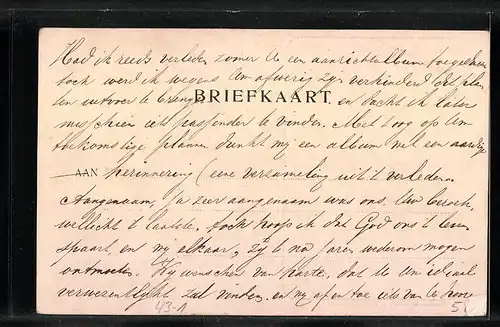 Had ik reeds verleden zomer U een aanzichtalbum toegedacht
toch werd ik wegens Uw afwezig zijn verhinderd dat plan
ten uitvoer te brengen en dacht ik later
BRIEFKAART.
misschien iets passender te vinden. Met oog op Uw
toekomstige plannen dunkt mij een album wel een aardige
AAN herinnering (eene verzameling uit 't verleden.
Aangenaam, ja zeer aangenaam was ons Uw bezoek,
wellicht 't laatste, toch hoop ik dat God ons 't leven
spaart en wij elkaar, zij 't na jaren wederom mogen
ontmoeten. Wij wenschen van harte, dat U Uw ideaal
verwezenlijkt zal vinden en wij af en toe iets van U hooren
43-1
5